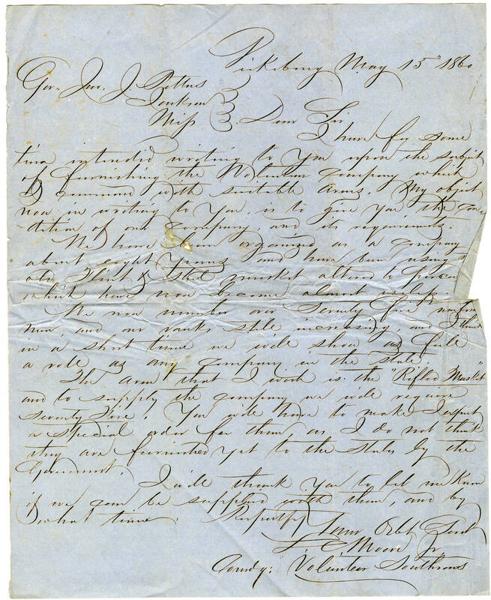 Vicksburg May 15th 1860
Gov. Jno. J Pettus
Jackson
Miss } Dear Sir,
I have for some
time intended writing to You upon the subject
of furnishing the Volunteer Company which
I command, with suitable Arms. My object
now in writing to You, is to give You the con
dition of our Company and its requirements.
We have been organized as a company
about eight Years and have been using
musket altered to percussion
which have now become almost
We now number over Seventy five
men and our ranks still increasing, and I think
in a short time we will show as full
a role as any company in the State
The arm that I wish is the "Rifled Musket"
and to supply the company we will require
Seventy Five! You will have to make I expect
a special order for them, as I do not think
they are furnished yet to the States by the
Government.
I will thank You to let me Know
if we can be supplied with them and by
what time. Respectfy
Your Obt Servt
L. E. Moore Jr
Comdg: Volunteer Southrons